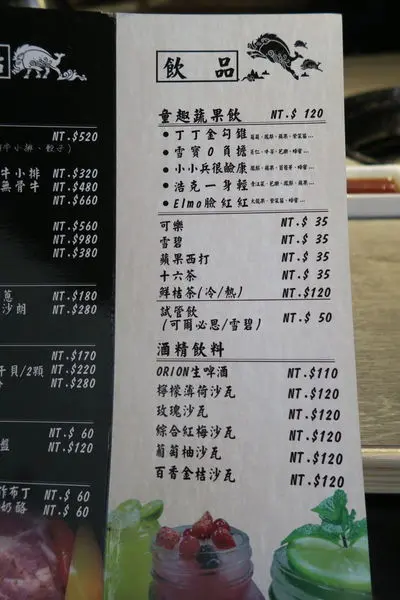 NT.$520
牛小排 NT.$320
無骨牛 NT.$480
NT.$660
NT.$560
NT.$980
NT.$380
蔥 NT.$180
沙朗 NT.$280
NT.$170
干貝/2顆 NT.$220
NT.$280
NT.$ 60
盤 NT.$120
作布丁 NT.$ 60
奶酪 NT.$ 60
飲 品
童趣蔬果飲 NT.$ 120
•丁丁金勾錐
•雪寶O負擔
•小小兵很鹼康
•浩克一身輕
•Elmo臉紅紅
可樂 NT.$ 35
雪碧 NT.$ 35
蘋果西打 NT.$ 35
十六茶 NT.$ 35
鮮桔茶(冷/熱) NT.$120
試管飲 NT.$ 50
(可爾必思/雪碧)
酒精飲料
ORION生啤酒 NT.$110
檸檬薄荷沙瓦 NT.$120
玫瑰沙瓦 NT.$120
綜合紅梅沙瓦 NT.$120
葡萄柚沙瓦 NT.$120
百香金桔沙瓦 NT.$120